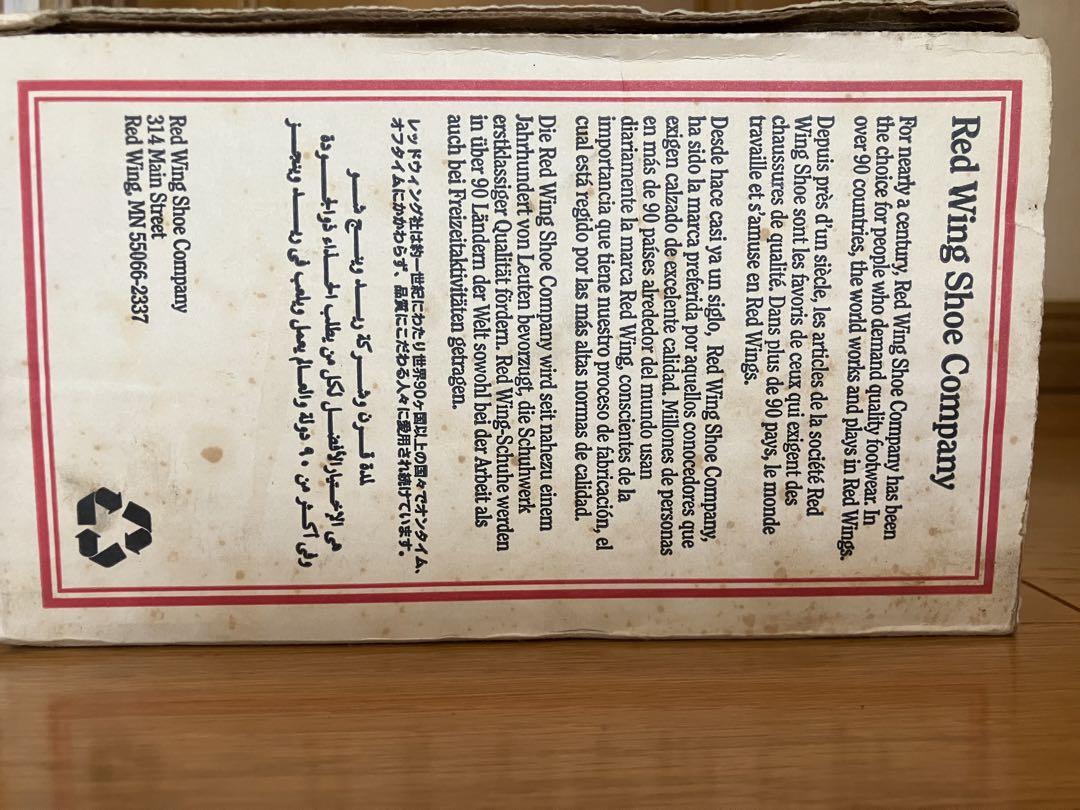 Red Wing Shoe Company
For nearly a century, Red Wing Shoe Company has been
the choice for people who demand quality footwear. In
over 90 countries, the world works and plays in Red Wings.
Depuis près d'un siècle, les articles de la société Red
Wing Shoe sont les favoris de ceux qui exigent des
chaussures de qualité. Dans plus de 90 pays, le monde
travaille et s'amuse en Red Wings.
Desde hace casi ya un siglo, Red Wing Shoe Company,
ha sido la marca preferida por aquellos conocedores que
exigen calzado de excelente calidad. Millones de personas
en más de 90 países alrededor del mundo usan
diariamente la marca Red Wing, conscientes de la
importancia que tiene nuestro proceso de fabricación, el
cual está regido por las más altas normas de calidad.
Die Red Wing Shoe Company wird seit nahezu einem
Jahrhundert von Leuten bevorzugt, die Schuhwerk
erstklassiger Qualität fördern. Red Wing-Schuhe werden
in über 90 Ländern der Welt sowohl bei der Arbeit als
auch bei Freizeitaktivitäten getragen.
レッドウィング社は約一世紀にわたり世界90ヶ国以上の国々でオンタイム、
オフタイムにかかわらず、品質にこだわる人々に愛用され続けています。
لمدة قرن وشركة ريد وينج شو
هي الاختيار الأفضل لكل من يطلب الحذاء ذو الجودة
وفي أكثر من ٩٠ دولة والعالم يعمل ويلعب في ريد وينجز
Red Wing Shoe Company
314 Main Street
Red Wing, MN 55066-2337